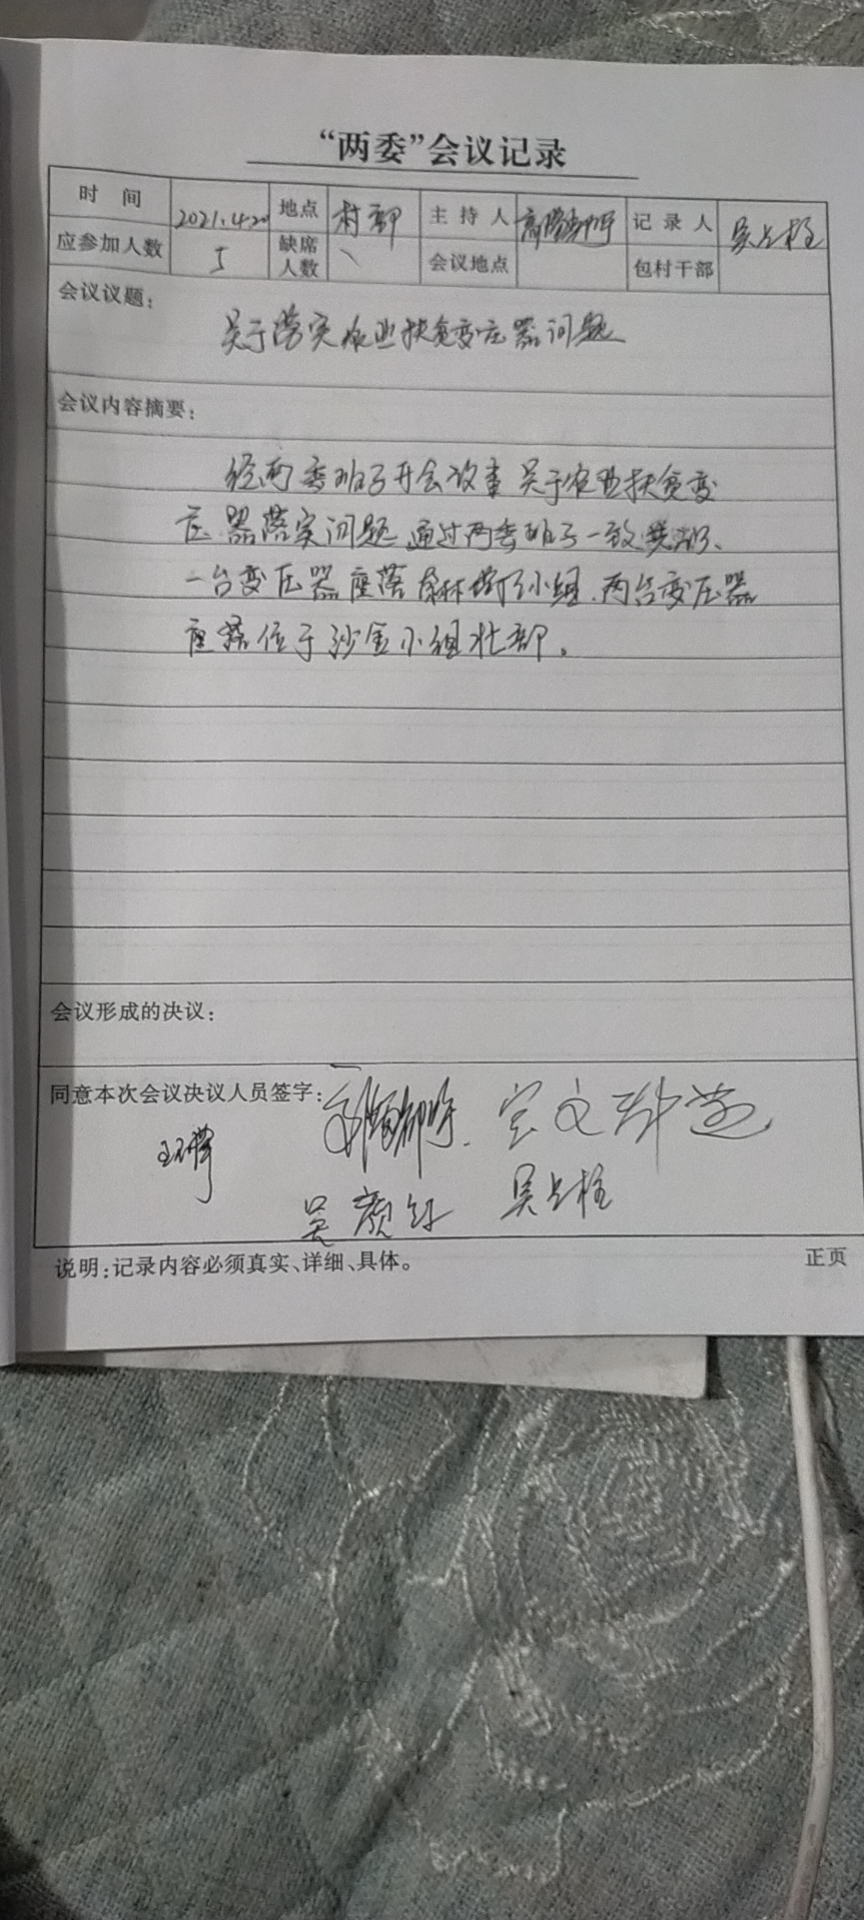 “两委”会议记录
时 间 2021.4.20 地点 村部 主持人 记录人 吴占柱
应参加人数 5 缺席人数 会议地点 包村干部
会议议题:
关于落实农业扶贫变压器问题
会议内容摘要:
经两委班子开会 关于农业扶贫变
压器落实问题 通过两委班子一致
一台变压器座落 小组、两台变压器
座落位于沙金小组北部。
会议形成的决议:
同意本次会议决议人员签字:
吴占柱
说明:记录内容必须真实、详细、具体。
正页